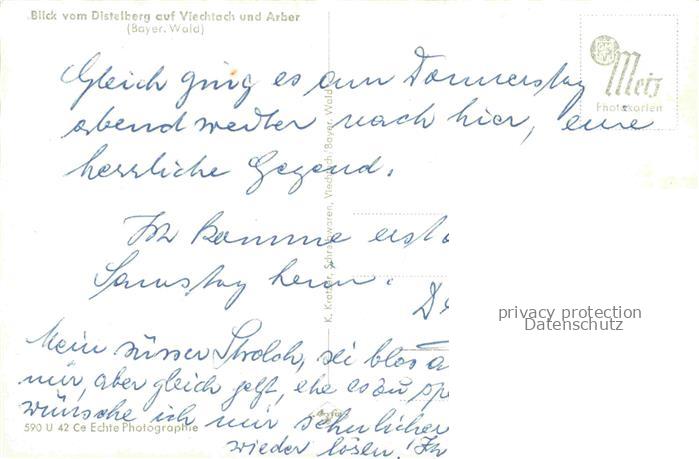 Blick vom Distelberg auf Viechtach und Arber
(Bayer. Wald)
Metz
Photokarten
Gleich ging es am Donnerstag
abend weiter nach hier, eine
herrliche Gegend.
Ich komme erst
Samstag heim.
K. Kratzer, Schreibwaren, Viechtach/Bayer. Wald
privacy protection
Datenschutz
Mein süsser Strolch, sei blos
mir, aber gleich jetzt, ehe es zu
wünsche ich mir sehnlicher
wieder lösen!
590 U 42 Ce Echte Photographie